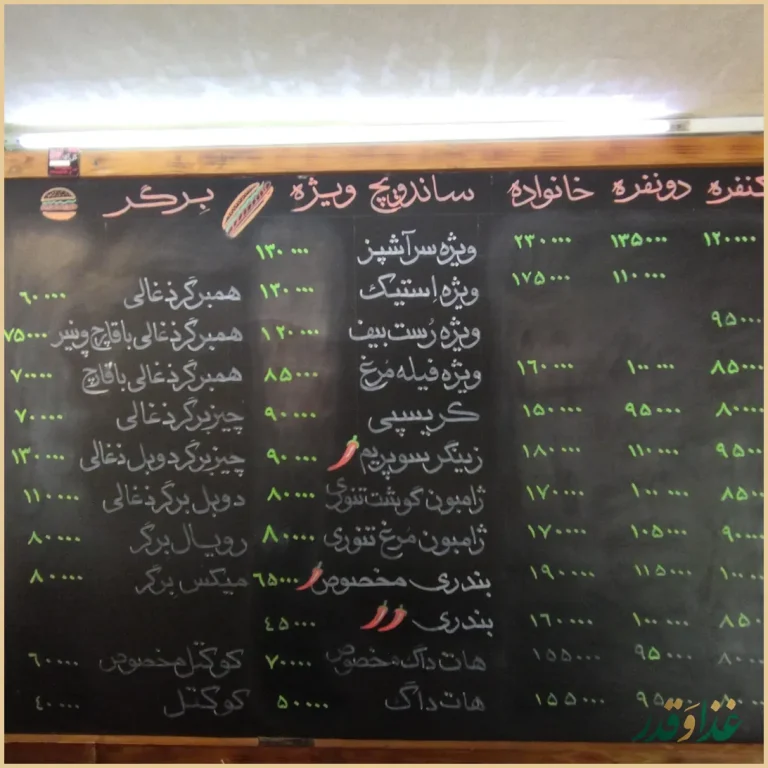 دونفره خانواده ساندویچ ویژه برگر
۱۲۰۰۰۰ ۱۳۵۰۰۰ ۲۳۰۰۰۰ ویژه سرآشپز ۱۳۰۰۰۰
۱۱۰۰۰۰ ۱۷۵۰۰۰ ویژه استیک ۱۳۰۰۰۰ همبرگر ذغالی ۶۰۰۰۰
۹۵۰۰۰ ویژه رُست بیف ۱۲۰۰۰۰ همبرگر ذغالی با قارچ و پنیر ۷۵۰۰۰
۸۵۰۰۰ ۱۰۰۰۰۰ ۱۶۰۰۰۰ ویژه فیله مرغ ۸۵۰۰۰ همبرگر ذغالی با قارچ ۷۰۰۰۰
۸۰۰۰۰ ۹۵۰۰۰ ۱۵۰۰۰۰ کریسپی ۹۰۰۰۰ چیزبرگر ذغالی ۷۰۰۰۰
۹۵۰۰۰ ۱۱۰۰۰۰ ۱۸۰۰۰۰ زینگر سوپریم ۹۰۰۰۰ چیزبرگر دوبل ذغالی ۱۳۰۰۰۰
۸۵۰۰۰ ۱۰۰۰۰۰ ۱۷۰۰۰۰ ژامبون گوشت تنوری ۸۰۰۰۰ دوبل برگر ذغالی ۱۱۰۰۰۰
۹۰۰۰۰ ۱۰۵۰۰۰ ۱۷۰۰۰۰ ژامبون مرغ تنوری ۸۰۰۰۰ رویال برگر ۸۰۰۰۰
۱۰۰۰۰۰ ۱۱۵۰۰۰ ۱۹۰۰۰۰ بندری مخصوص ۶۵۰۰۰ میکس برگر ۸۰۰۰۰
۸۵۰۰۰ ۱۰۰۰۰۰ ۱۶۰۰۰۰ بندری ۴۵۰۰۰
۸۰۰۰۰ ۹۵۰۰۰ ۱۵۵۰۰۰ هات داگ مخصوص ۷۰۰۰۰ کوکتل مخصوص ۶۰۰۰۰
۹۵۰۰۰ ۱۵۵۰۰۰ هات داگ ۵۰۰۰۰ کوکتل ۴۰۰۰۰
غذا و قدر